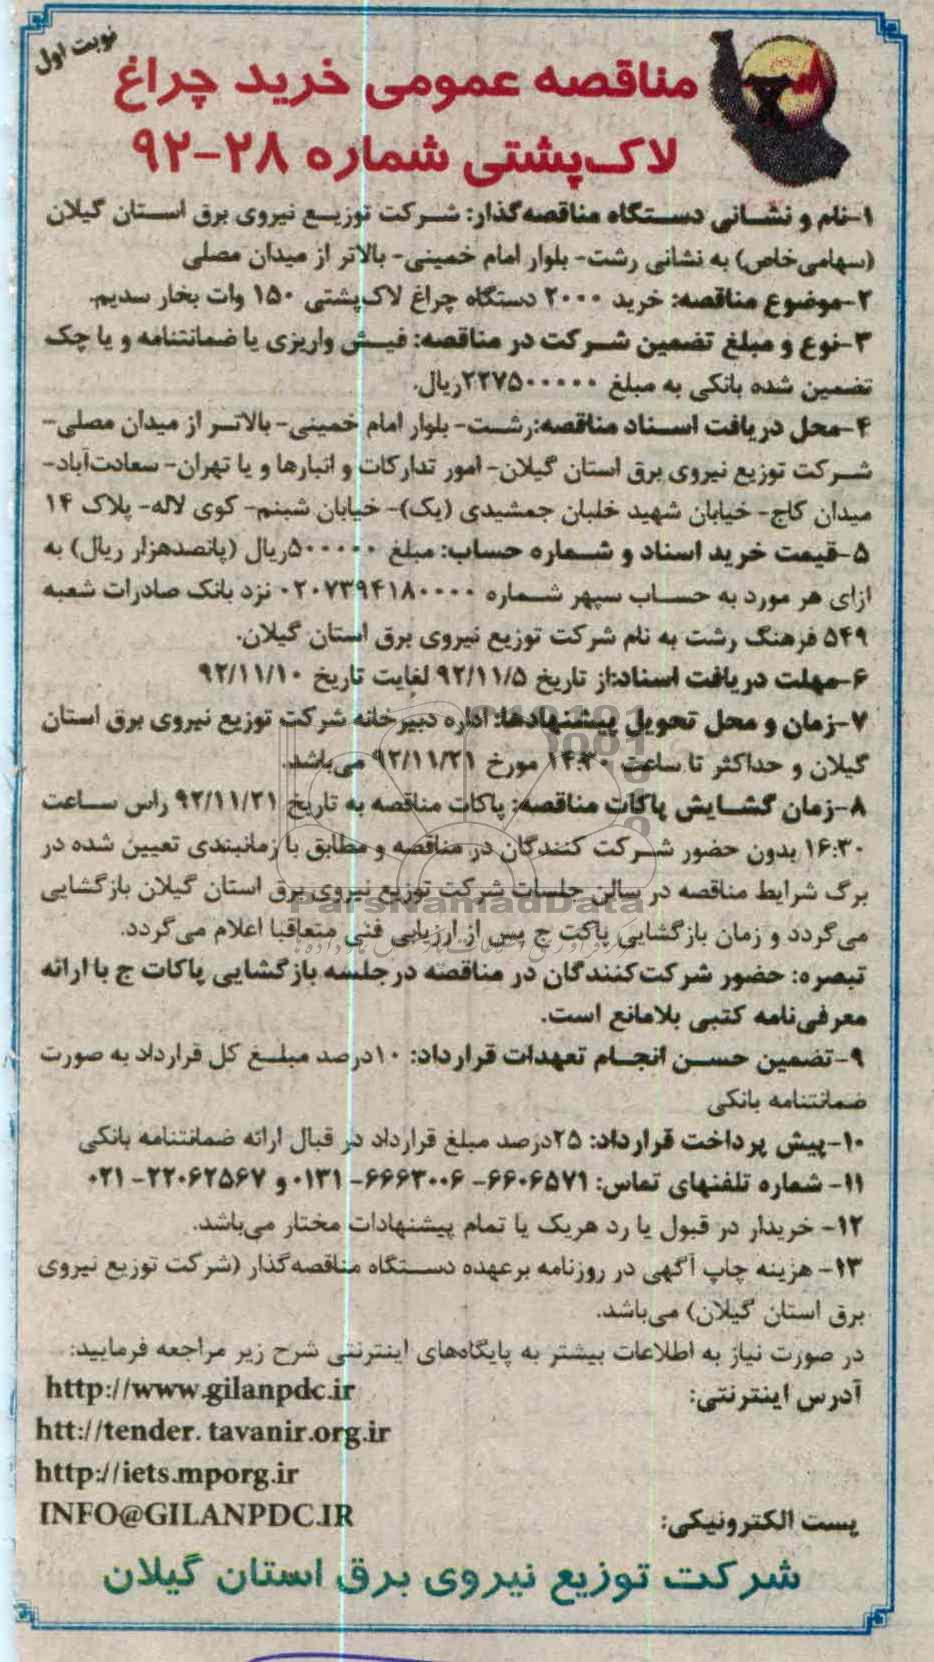 نوبت اول
مناقصه عمومی خرید چراغ
لاک‌پشتی شماره ۲۸-۹۲
۱-نام و نشانی دستگاه مناقصه‌گذار: شرکت توزیع نیروی برق استان گیلان
(سهامی‌خاص) به نشانی رشت- بلوار امام خمینی- بالاتر از میدان مصلی
۲-موضوع مناقصه: خرید ۲۰۰۰ دستگاه چراغ لاک‌پشتی ۱۵۰ وات بخار سدیم.
۳-نوع و مبلغ تضمین شرکت در مناقصه: فیش واریزی یا ضمانتنامه و یا چک
تضمین شده بانکی به مبلغ ۲۲۷۵۰۰۰۰۰ریال.
۴-محل دریافت اسناد مناقصه:رشت- بلوار امام خمینی- بالاتر از میدان مصلی-
شرکت توزیع نیروی برق استان گیلان- امور تدارکات و انبارها و یا تهران- سعادت‌آباد-
میدان کاج- خیابان شهید خلبان جمشیدی (یک)- خیابان شبنم- کوی لاله- پلاک ۱۴
۵-قیمت خرید اسناد و شماره حساب: مبلغ ۵۰۰۰۰۰ریال (پانصدهزار ریال) به
ازای هر مورد به حساب سپهر شماره ۰۲۰۷۳۹۴۱۸۰۰۰۰ نزد بانک صادرات شعبه
۵۴۹ فرهنگ رشت به نام شرکت توزیع نیروی برق استان گیلان.
۶-مهلت دریافت اسناد:از تاریخ ۹۲/۱۱/۵ لغایت تاریخ ۹۲/۱۱/۱۰
۷-زمان و محل تحویل پیشنهادها: اداره دبیرخانه شرکت توزیع نیروی برق استان
گیلان و حداکثر تا ساعت ۱۴:۳۰ مورخ ۹۲/۱۱/۲۱ می‌باشد.
۸-زمان گشایش پاکات مناقصه: پاکات مناقصه به تاریخ ۹۲/۱۱/۲۱ راس ساعت
۱۶:۳۰ بدون حضور شرکت کنندگان در مناقصه و مطابق با زمانبندی تعیین شده در
برگ شرایط مناقصه در سالن جلسات شرکت توزیع نیروی برق استان گیلان بازگشایی
ParsNamadData
می‌گردد و زمان بازگشایی پاکت ج پس از ارزیابی فنی متعاقبا اعلام می‌گردد.
تبصره: حضور شرکت‌کنندگان در مناقصه در جلسه بازگشایی پاکات ج با ارائه
معرفی‌نامه کتبی بلامانع است.
۹-تضمین حسن انجام تعهدات قرارداد: ۱۰درصد مبلغ کل قرارداد به صورت
ضمانتنامه بانکی
۱۰-پیش پرداخت قرارداد: ۲۵درصد مبلغ قرارداد در قبال ارائه ضمانتنامه بانکی
۱۱- شماره تلفنهای تماس: ۶۶۰۶۵۷۱- ۶۶۶۳۰۰۶- ۰۱۳۱ و ۲۲۰۶۲۵۶۷- ۰۲۱
۱۲- خریدار در قبول یا رد هریک یا تمام پیشنهادات مختار می‌باشد.
۱۳- هزینه چاپ آگهی در روزنامه برعهده دستگاه مناقصه‌گذار (شرکت توزیع نیروی
برق استان گیلان) می‌باشد.
در صورت نیاز به اطلاعات بیشتر به پایگاه‌های اینترنتی شرح زیر مراجعه فرمایید:
آدرس اینترنتی: http://www.gilanpdc.ir
htt://tender. tavanir.org.ir
http://iets.mporg.ir
پست الکترونیکی: INFO@GILANPDC.IR
شرکت توزیع نیروی برق استان گیلان